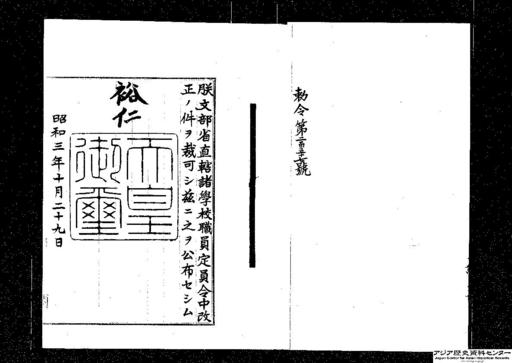 勅令第二百五十六號
朕文部省直轄諸學校職員定員令中改
正ノ件ヲ裁可シ茲ニ之ヲ公布セシム
裕仁
天皇
御璽
昭和三年十月二十九日
アジア歴史資料センター
Japan Center for Asian Historical Records